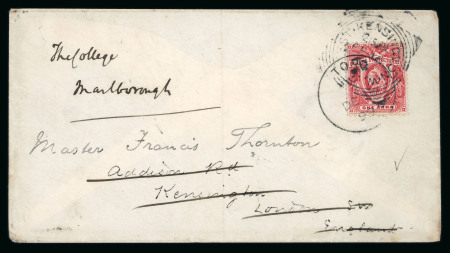 The College
Marlborough
Master Francis Thornton
Addison Rd
Kensington
London SW
England
KENSING
ONE ANNA